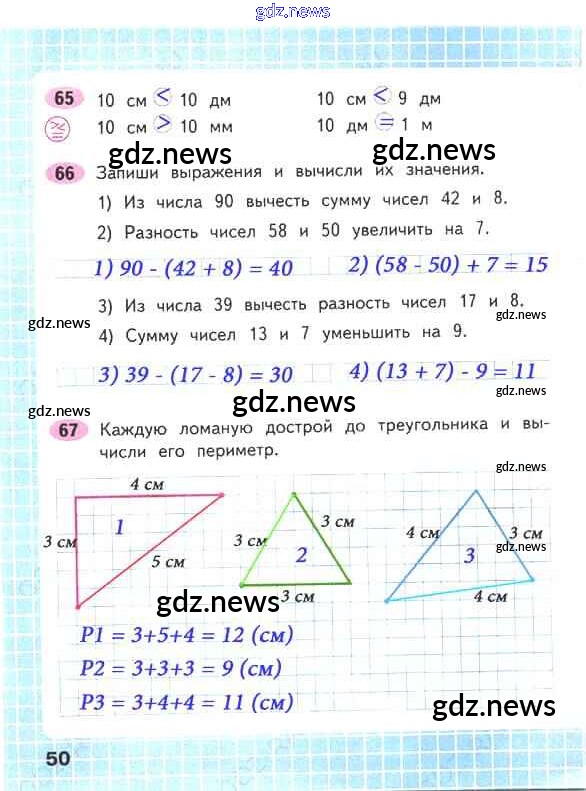 gdz.news
65 10 см < 10 дм 10 см < 9 дм
10 см > 10 мм 10 дм = 1 м
gdz.news gdz.news
66 Запиши выражения и вычисли их значения.
1) Из числа 90 вычесть сумму чисел 42 и 8.
2) Разность чисел 58 и 50 увеличить на 7.
1) 90 - (42 + 8) = 40 2) (58 - 50) + 7 = 15
3) Из числа 39 вычесть разность чисел 17 и 8.
gdz.news gdz.news
4) Сумму чисел 13 и 7 уменьшить на 9.
3) 39 - (17 - 8) = 30 4) (13 + 7) - 9 = 11
gdz.news gdz.news gdz.news
67 Каждую ломаную дострой до треугольника и вы-
числи его периметр.
gdz.news
4 см
3 см 1 5 см
3 см 2 3 см 3 см
4 см 3 3 см 4 см
gdz.news
gdz.news
P1 = 3+5+4 = 12 (см)
P2 = 3+3+3 = 9 (см)
P3 = 3+4+4 = 11 (см)
gdz.news gdz.news
50